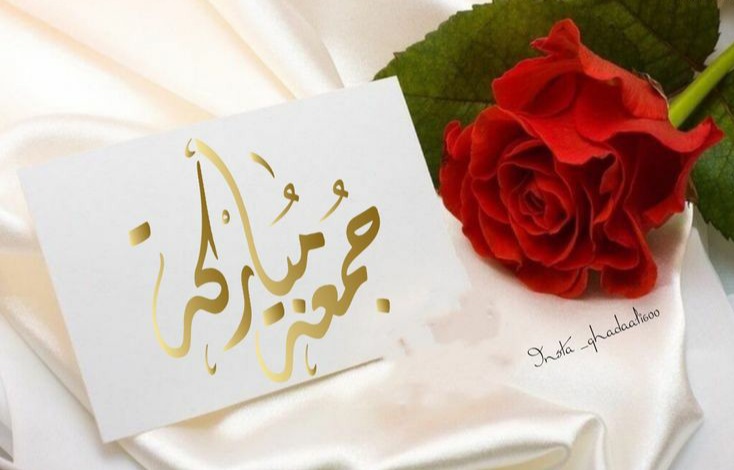 جُمعة مُباركة
Insta_ghadaali600